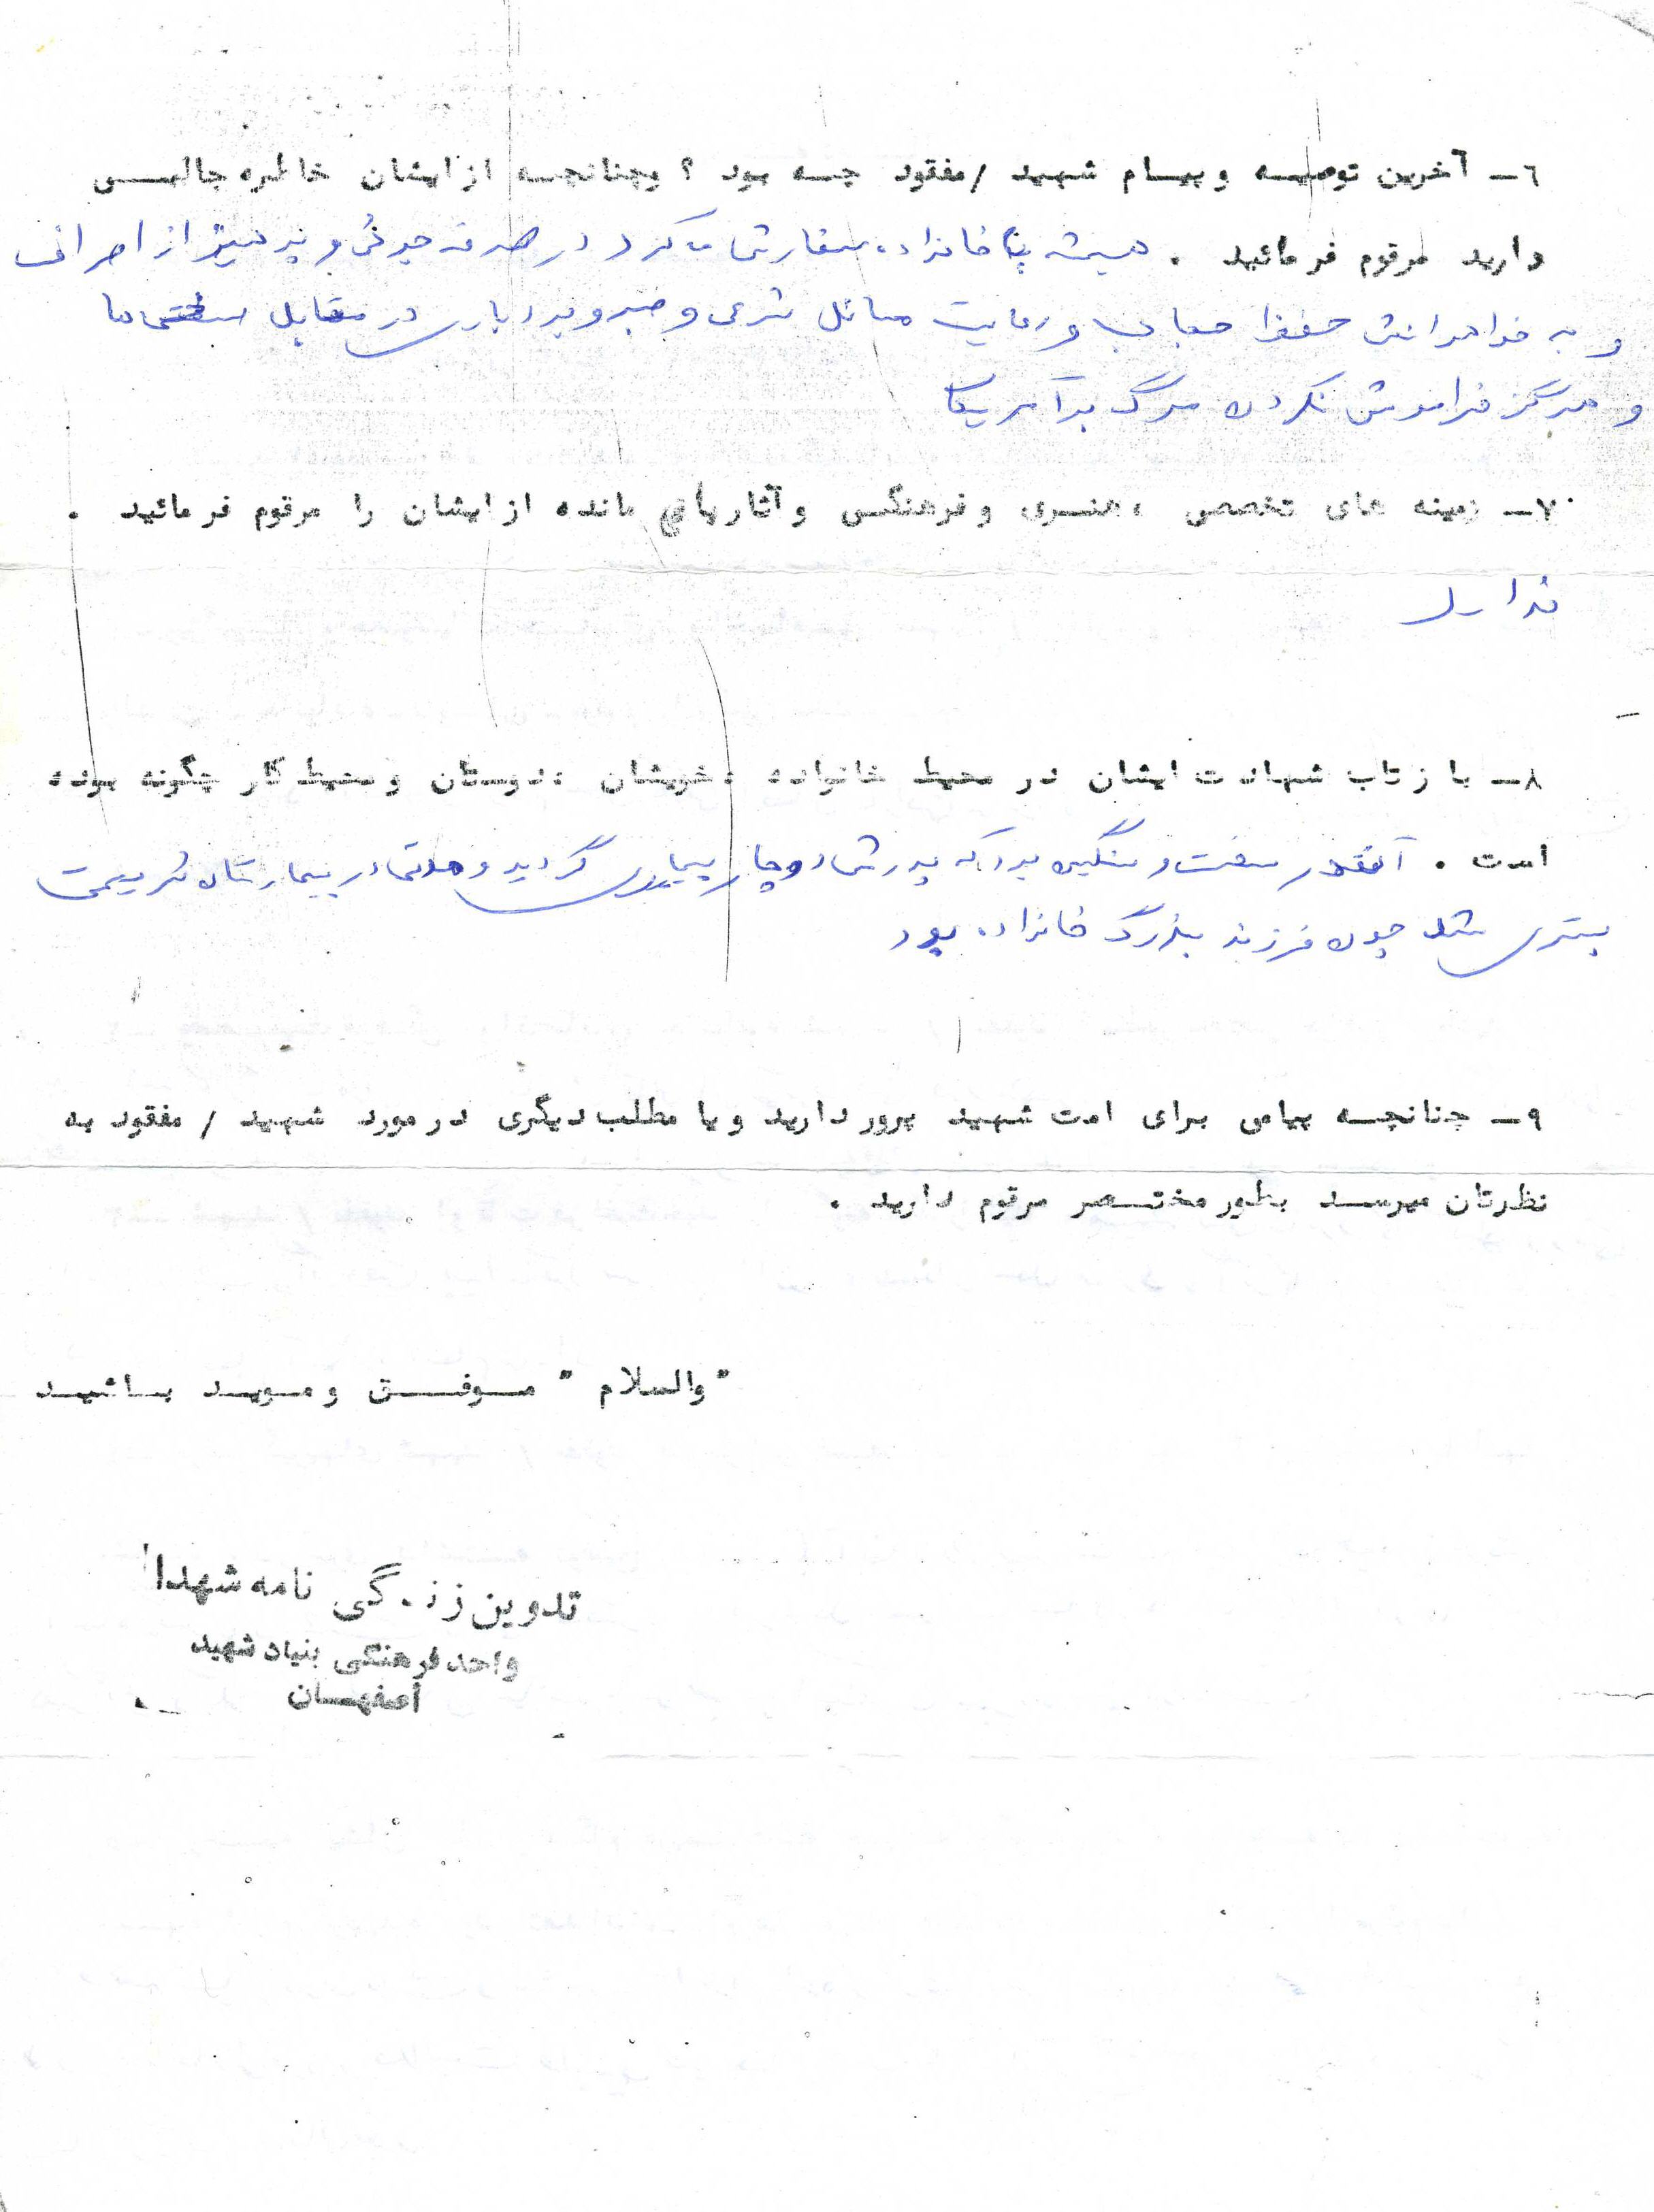 ۶- آخرین توصیه و پیام شهید / مفقود چه بود ؟ وچنانچه از ایشان خاطره جالبی
دارید مرقوم فرمائید . همیشه به خانواده سفارش می کرد در صرفه جوئی و پرهیز از اصراف
و به خواهرانش حفظ حجاب و رعایت مسائل شرعی و صبر و بردباری در مقابل سختی ها
و هرگز فراموش نکردن مرگ بر آمریکا
۷- زمینه های تخصصی ، هنری و فرهنگی و آثار باقی مانده از ایشان را مرقوم فرمائید .
ندارد
۸- بازتاب شهادت ایشان در محیط خانواده ، خویشان ، دوستان و محیط کار چگونه بوده
است . آنقدر سخت و سنگین بود که پدرش دچار بیماری گردید و مدتها در بیمارستان شریعتی
بستری شد چون فرزند بزرگ خانواده بود
۹- چنانچه پیامی برای امت شهید پرور دارید و یا مطلب دیگری در مورد شهید / مفقود به
نظرتان میرسد بطور مختصر مرقوم دارید .
"والسلام" موفق و موید باشید
تدوین زندگی نامه شهدا
واحد فرهنگی بنیاد شهید
اصفهان